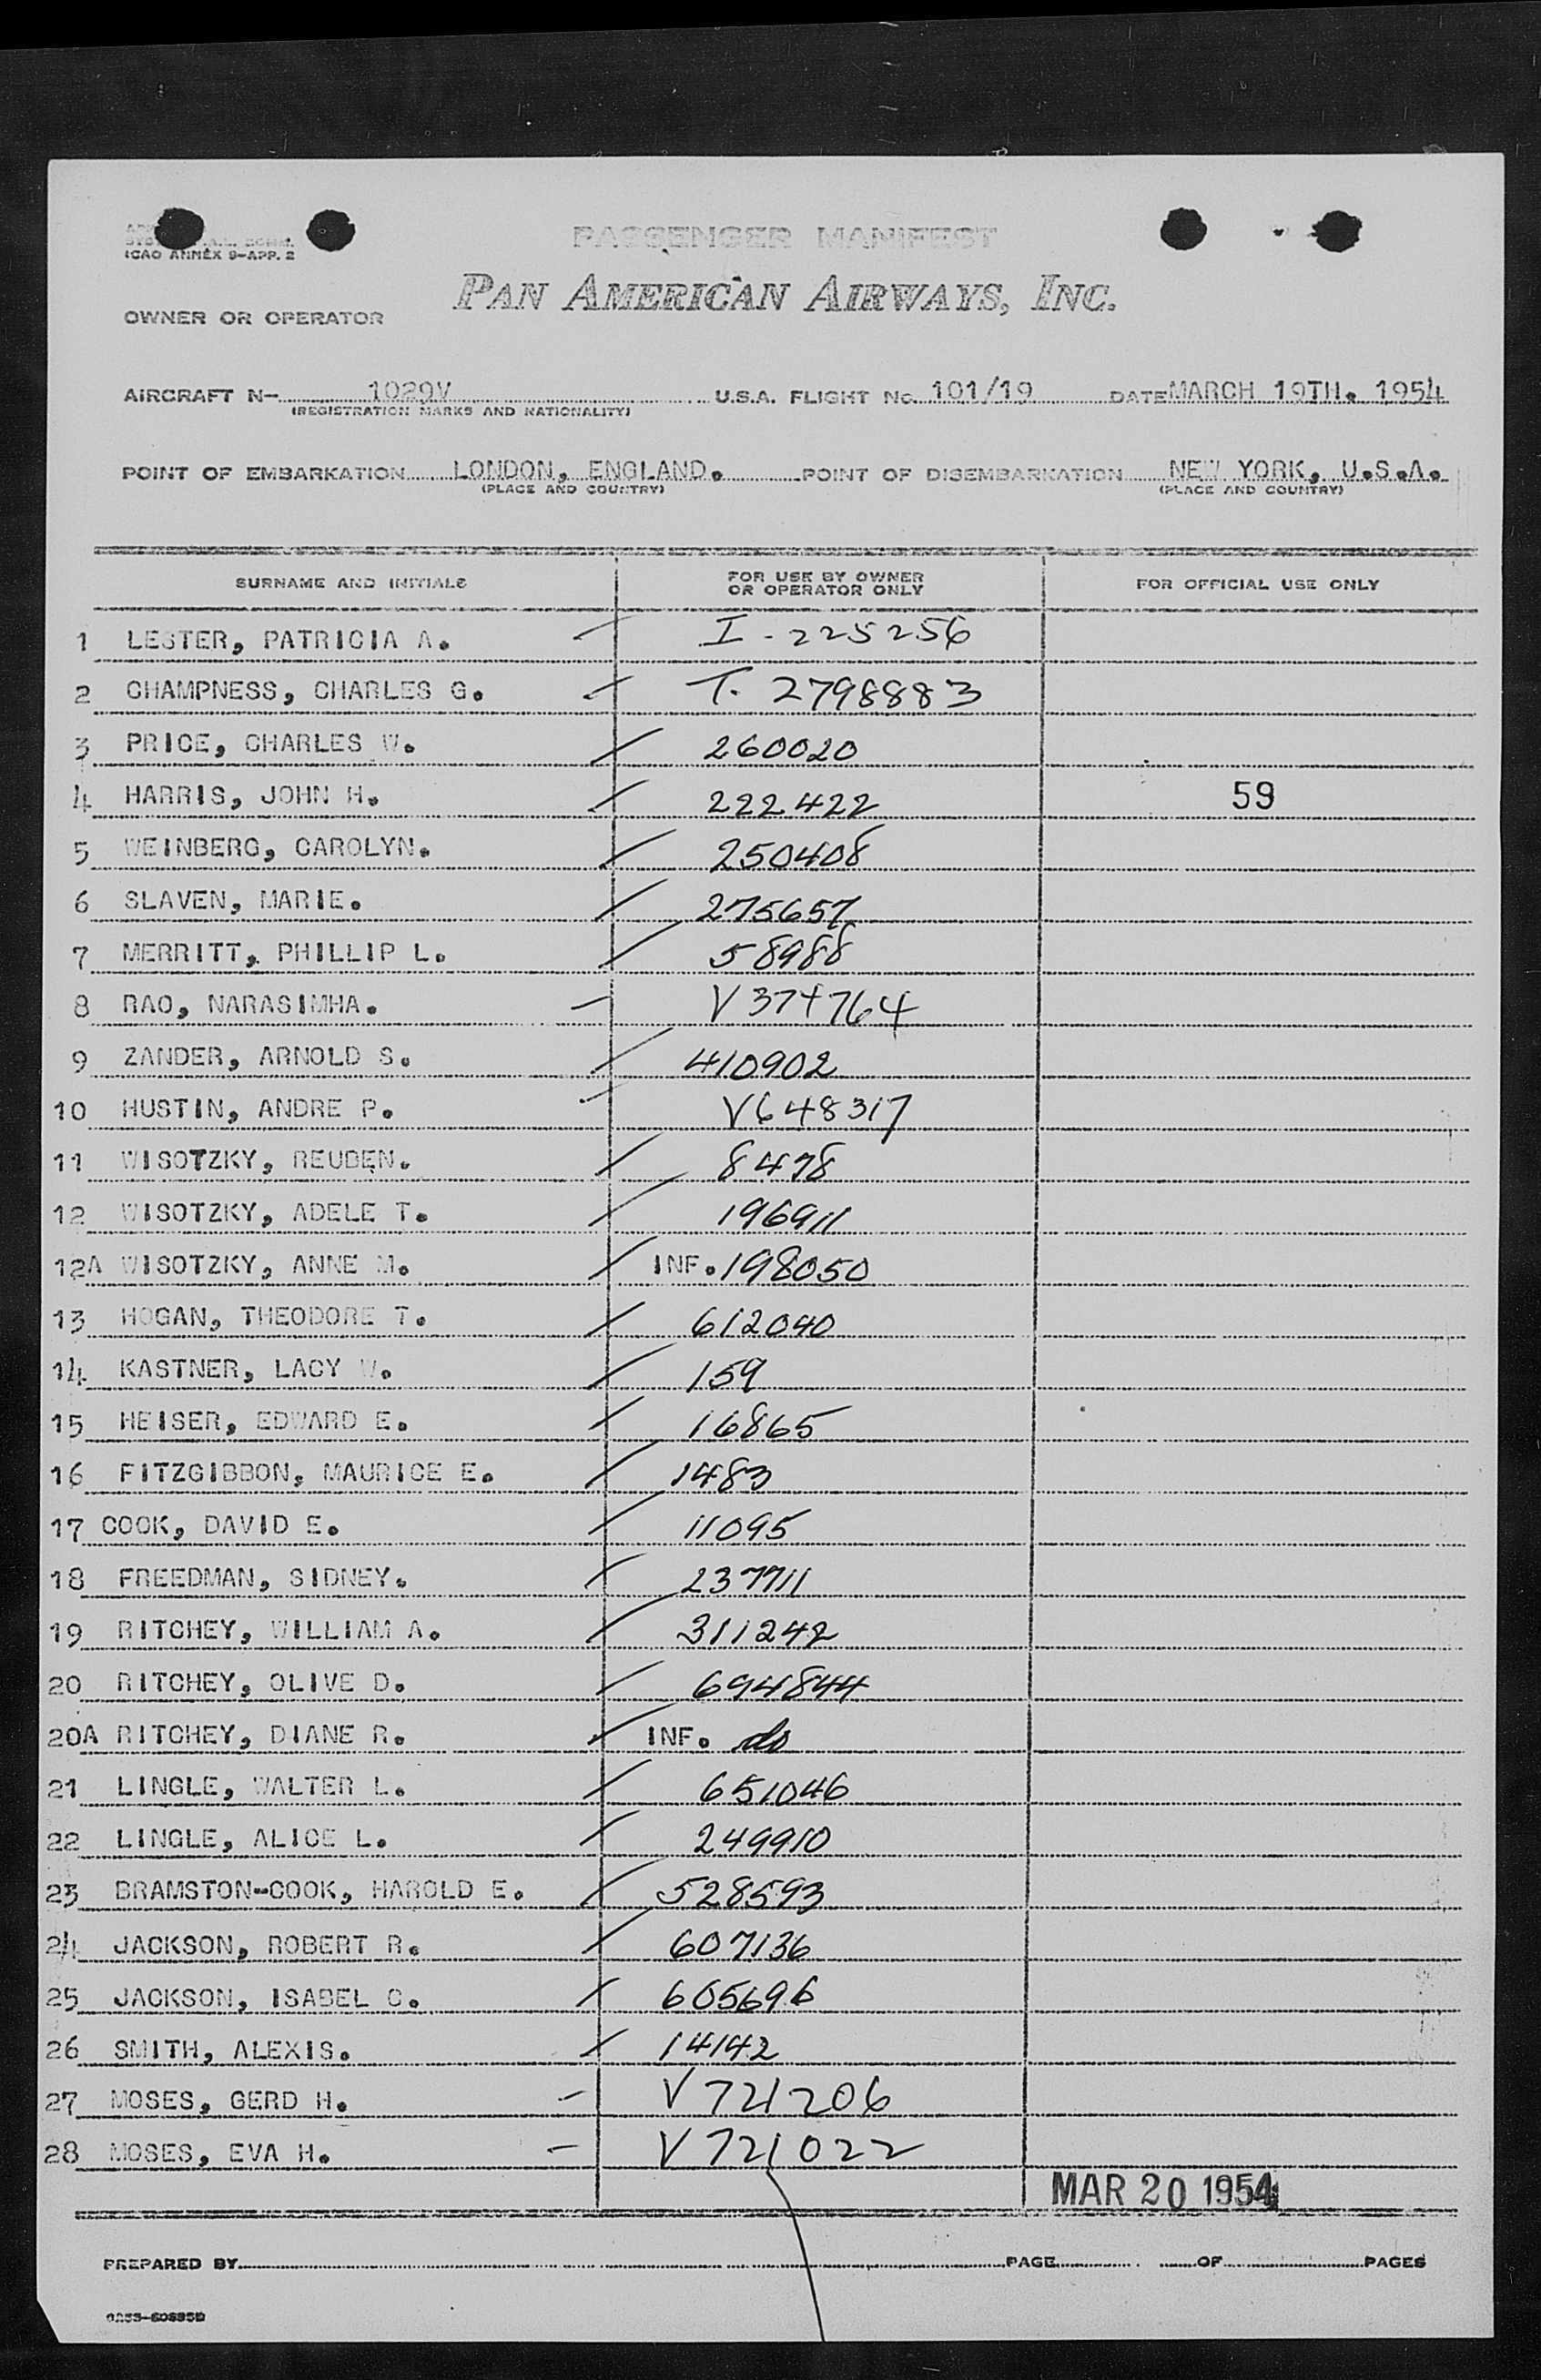 ICAO ANNEX 9-APP. 2
PASSENGER MANIFEST
PAN AMERICAN AIRWAYS, INC.
OWNER OR OPERATOR
AIRCRAFT N- 1029V U.S.A. FLIGHT No. 101/19 DATE MARCH 19TH. 1954
(REGISTRATION MARKS AND NATIONALITY)
POINT OF EMBARKATION LONDON, ENGLAND. POINT OF DISEMBARKATION NEW YORK, U.S.A.
(PLACE AND COUNTRY) (PLACE AND COUNTRY)
SURNAME AND INITIALS FOR USE BY OWNER OR OPERATOR ONLY FOR OFFICIAL USE ONLY
1 LESTER, PATRICIA A. I-225256
2 CHAMPNESS, CHARLES G. T. 2798883
3 PRICE, CHARLES W. 260020
4 HARRIS, JOHN H. 222422 59
5 WEINBERG, CAROLYN. 250408
6 SLAVEN, MARIE. 275657
7 MERRITT, PHILLIP L. 58988
8 RAO, NARASIMHA. V 374764
9 ZANDER, ARNOLD S. 410902
10 HUSTIN, ANDRE P. V648317
11 WISOTZKY, REUBEN. 8478
12 WISOTZKY, ADELE T. 196911
12A WISOTZKY, ANNE M. INF. 198050
13 HOGAN, THEODORE T. 612040
14 KASTNER, LACY W. 159
15 HEISER, EDWARD E. 16865
16 FITZGIBBON, MAURICE E. 1483
17 COOK, DAVID E. 11095
18 FREEDMAN, SIDNEY. 237711
19 RITCHEY, WILLIAM A. 311242
20 RITCHEY, OLIVE D. 694844
20A RITCHEY, DIANE R. INF. do
21 LINGLE, WALTER L. 651046
22 LINGLE, ALICE L. 249910
23 BRAMSTON-COOK, HAROLD E. 528593
24 JACKSON, ROBERT R. 607136
25 JACKSON, ISABEL C. 605696
26 SMITH, ALEXIS. 14142
27 MOSES, GERD H. V 721206
28 MOSES, EVA H. V 721022
MAR 20 1954
PREPARED BY PAGE OF PAGES